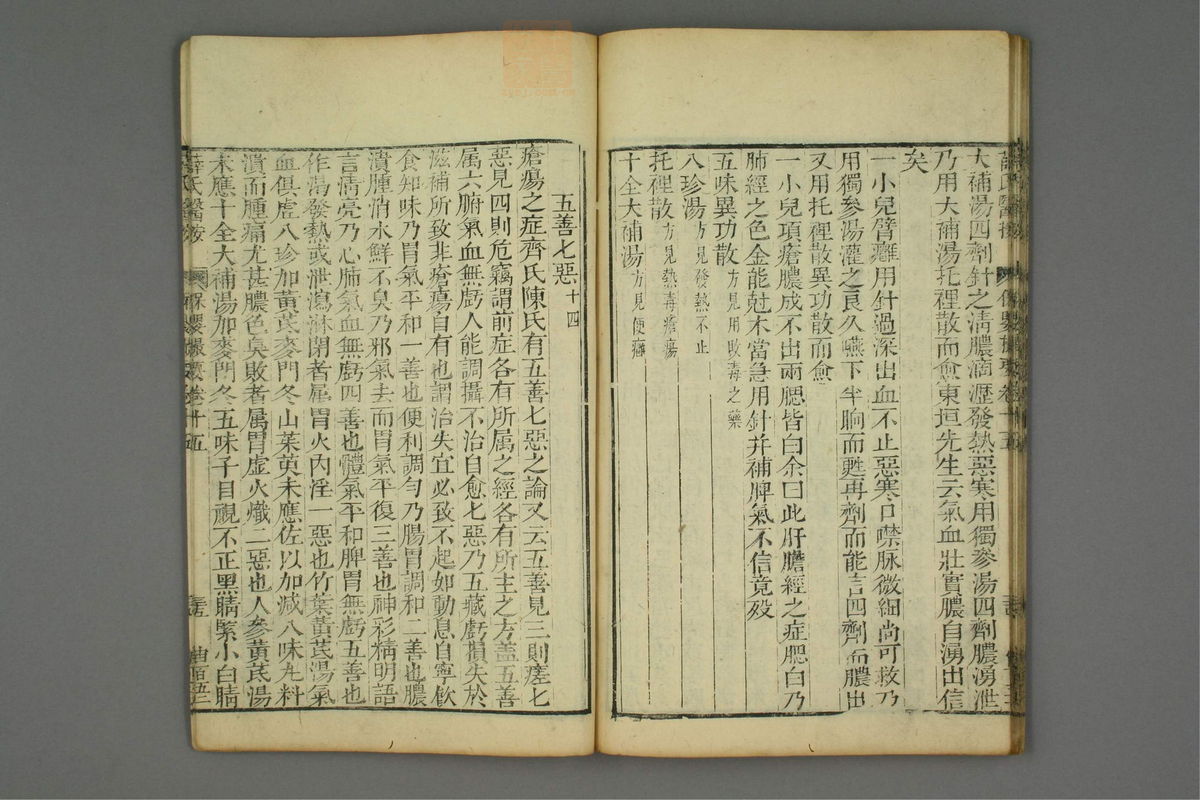 大補湯四劑針之清膿滴瀝發熱惡寒用獨參湯四劑膿湧泄
乃用大補湯托裡散而愈東垣先生云氣血壯實膿自湧出信
矣
一小兒臂癰用針過深出血不止惡寒口噤脉微細尚可救乃
用獨參湯灌之良久嚥下半晌而甦再劑而能言四劑而膿出
又用托裡散異功散而愈
一小兒項瘡膿成不出兩腮皆白余曰此肝膽經之症腮白乃
肺經之色金能尅木當急用針并補脾氣不信竟歿
五味異功散方見用敗毒之藥
八珍湯方見發熱不止
托裡散方見熱毒瘡瘍
十全大補湯方見便癰
五善七惡十四
瘡瘍之症齊氏陳氏有五善七惡之論又云五善見三則瘥七
惡見四則危竊謂前症各有所属之經各有所主之方盖五善
属六腑氣血無虧人能調攝不治自愈七惡乃五藏虧損失於
滋補所致非瘡瘍自有也謂治失宜必致不起如動息自寧飲
食知味乃胃氣平和一善也便利調勻乃腸胃調和二善也膿
潰腫消水鮮不臭乃邪氣去而胃氣平復三善也神彩精明語
言清亮乃心肺氣血無虧四善也體氣平和脾胃無虧五善也
作渴發熱或泄瀉淋閉者属胃火內淫一惡也竹葉黃芪湯氣
血俱虛八珍加黃芪麥門冬山茱萸未應佐以加减八味丸料
潰而腫痛尤甚膿色臭敗者属胃虛火熾二惡也人參黃芪湯
未應十全大補湯加麥門冬五味子目視不正黑睛緊小白睛
薛氏醫按
保嬰撮要卷十五